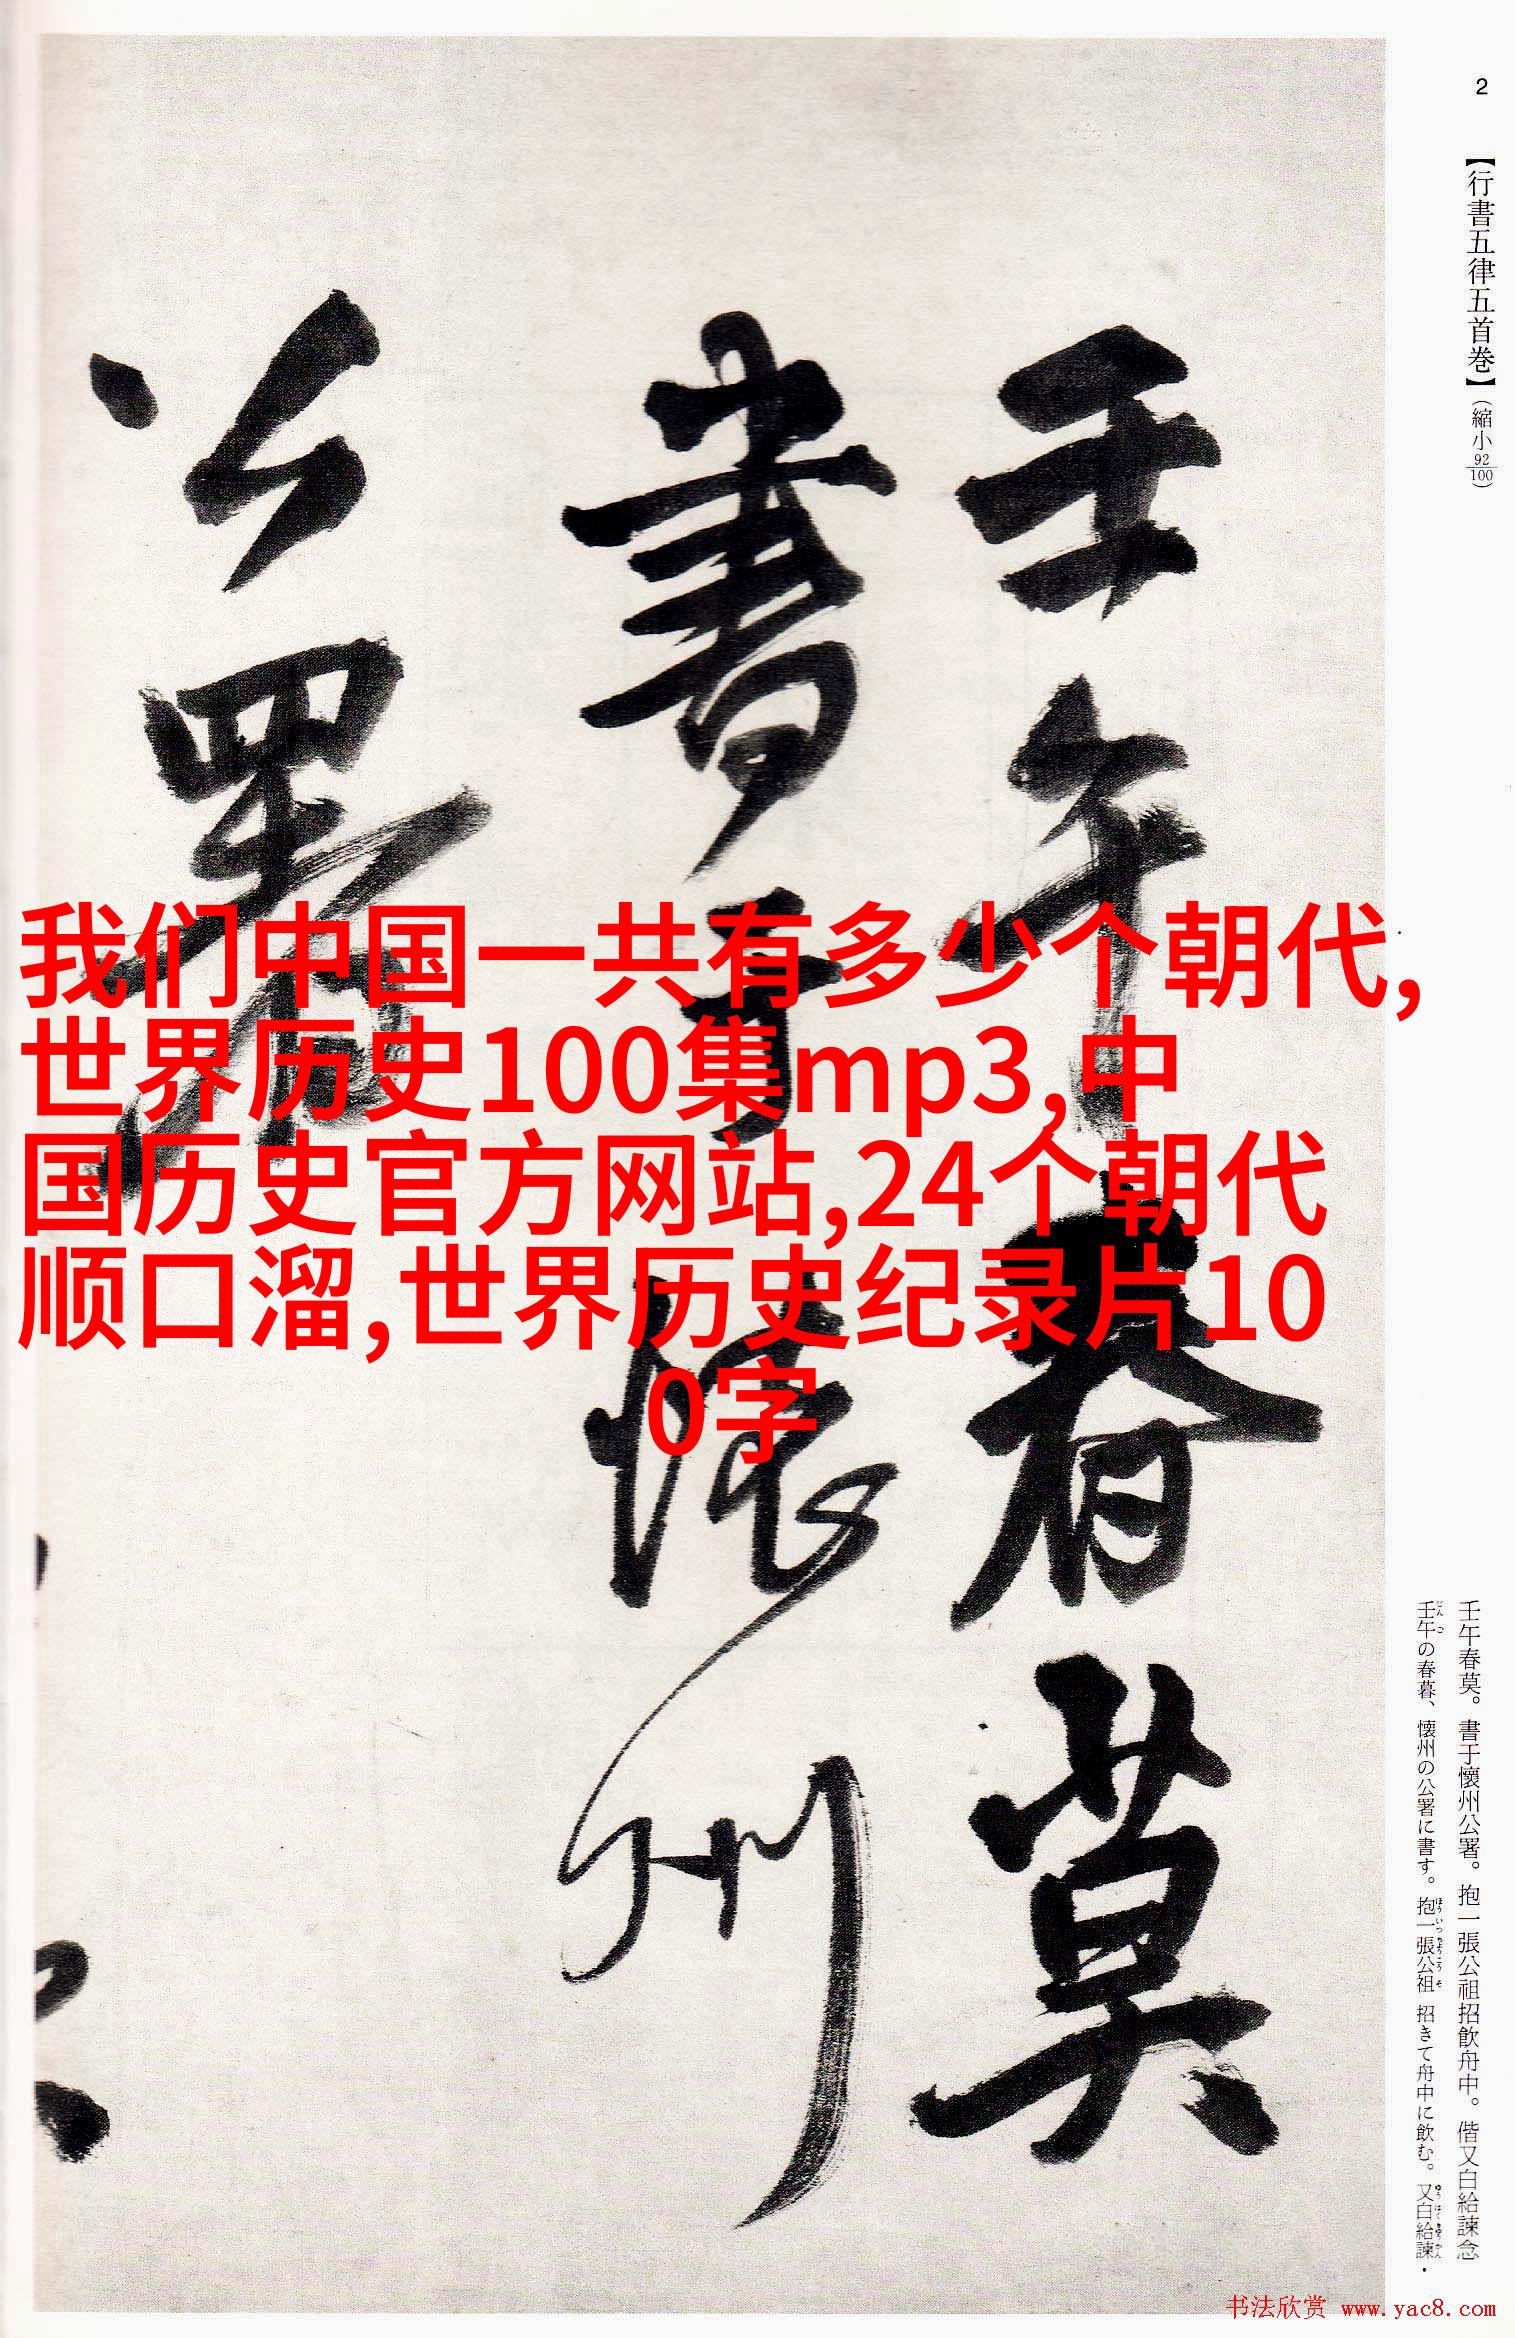 2
【行書五律五首巻】(縮小92/100)
壬午春莫
書于懐州
公署
我们中国一共有多少个朝代,
世界历史100集mp3,中
国历史官方网站,24个朝代
顺口溜,世界历史纪录片10
0字
壬午春莫。書于懷州公署。抱一張公祖招飲舟中。偕又白給諫念
壬午の春暮、懐州の公署に書す。抱一張公祖 招きて舟中に飲む。又白給諫・
书法欣赏 www.yac8.com